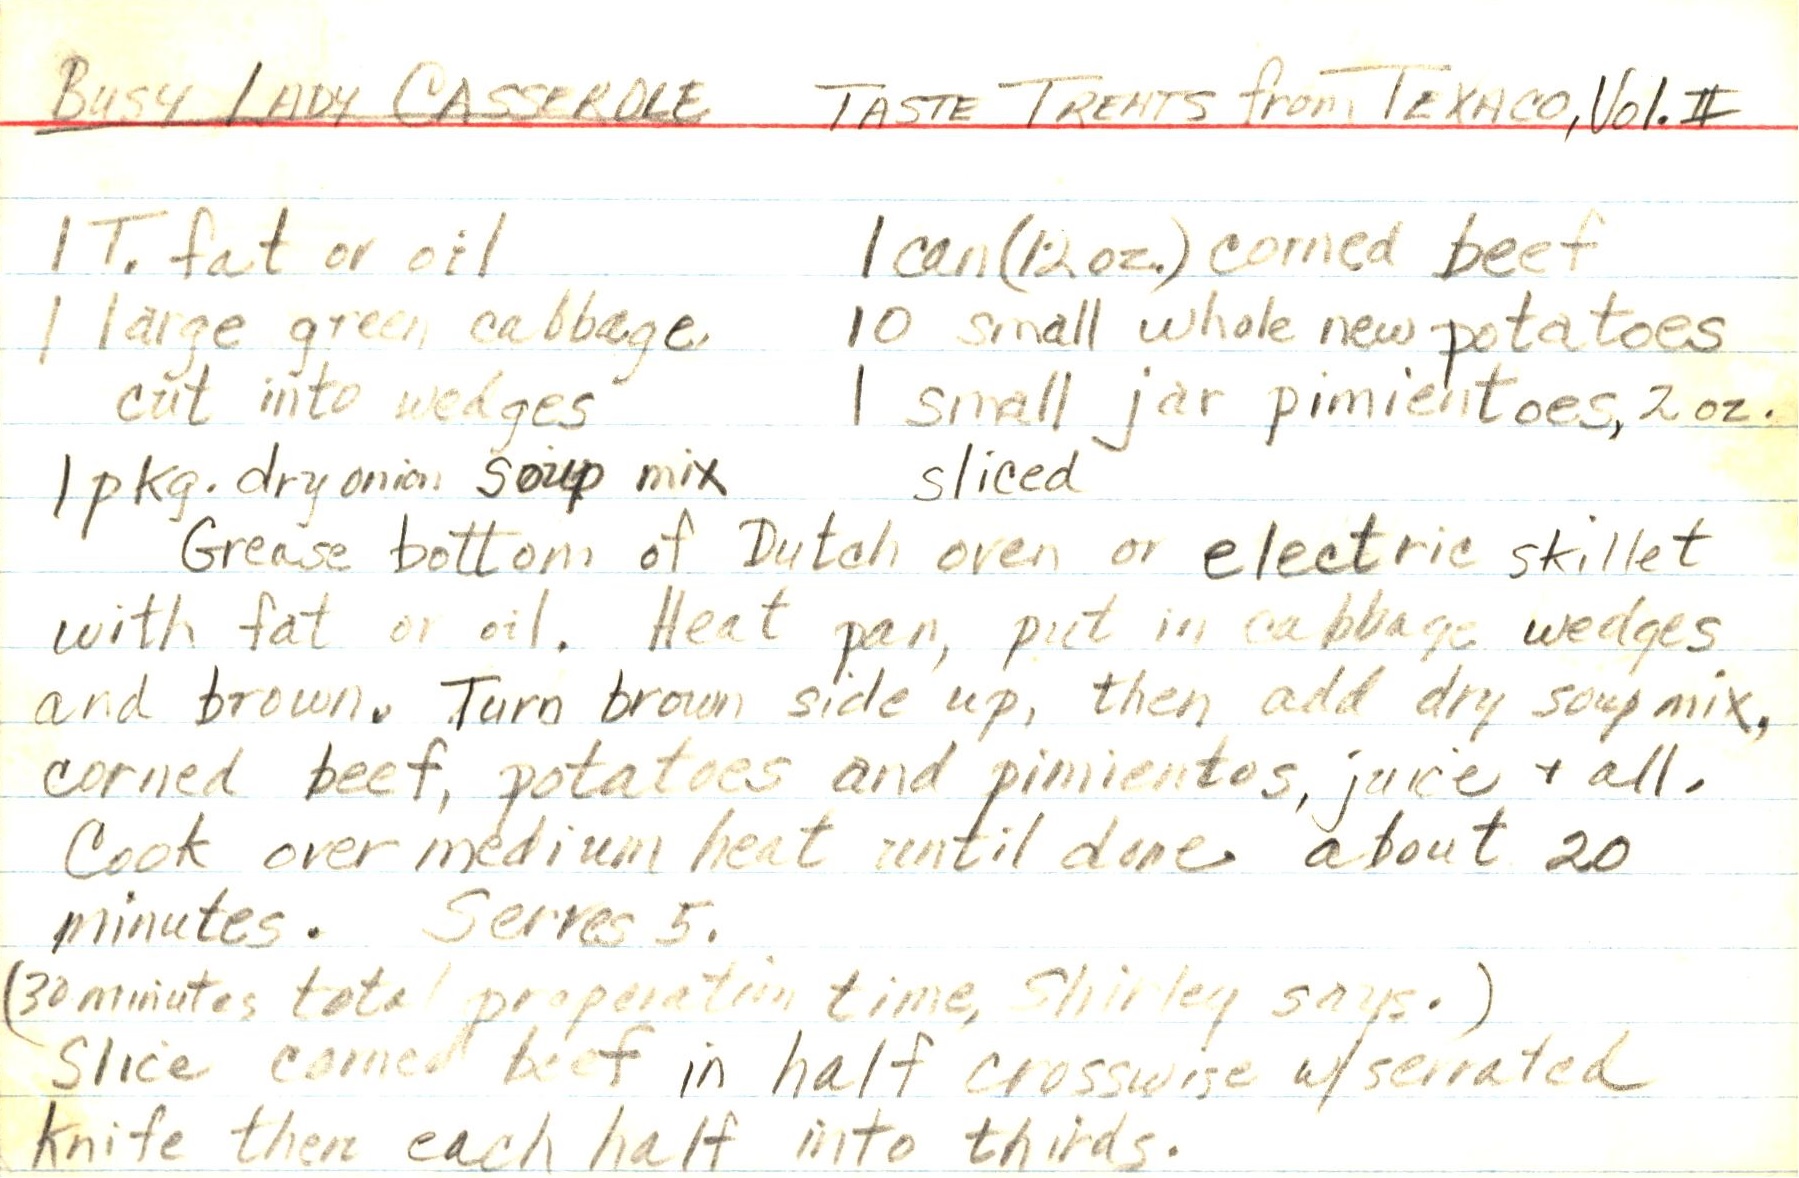 BUSY LADY CASSEROLE TASTE TREATS from TEXACO, Vol. II
1 T. fat or oil
1 large green cabbage
cut into wedges
1 pkg. dry onion soup mix
1 can (12 oz.) corned beef
10 small whole new potatoes
1 small jar pimientoes, 2 oz.
sliced
Grease bottom of Dutch oven or electric skillet
with fat or oil. Heat pan, put in cabbage wedges
and brown. Turn brown side up, then add dry soup mix,
corned beef, potatoes and pimientos, juice + all.
Cook over medium heat until done about 20
minutes. Serves 5.
(30 minutes total preparation time, Shirley says.)
Slice corned beef in half crosswise w/serrated
knife then each half into thirds.